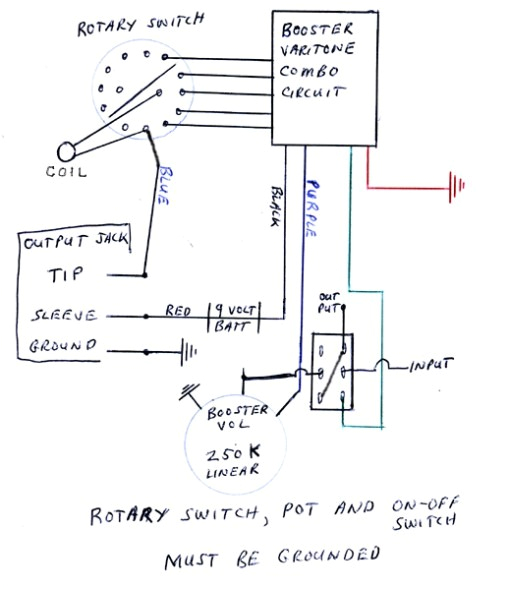 ROTARY SWITCH
BOOSTER
VARITONE
COMBO
CIRCUIT
COIL
BLUE
BLACK
PURPLE
OUTPUT JACK
TIP
SLEEVE
RED
9 VOLT
BATT
GROUND
OUT
PUT
INPUT
BOOSTER
VOL
250K
LINEAR
ROTARY SWITCH, POT AND ON-OFF
SWITCH
MUST BE GROUNDED